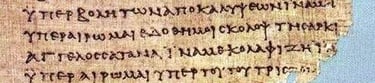 ϒΠΕΡΒΟΛΗΤΩΝΑΠΟΚΑΛΥΨΕΩΝΙΝΑΜ
ΥΠΕΡΑΙΡΩΜΑΙΕΔΟΘΗΜΟΙϹΚΟΛΟΨΤΗϹΑΡΚΙ
ΑΓΓΕΛΟϹϹΑΤΑΝΑΙΝΑΜΕΚΟΛΑΦΙΖΗΙ
ΥΠΕΡΑΙΡΩΜΑΙΥΠΕΡΤΟΥΤΟΥΤΡΙϹ